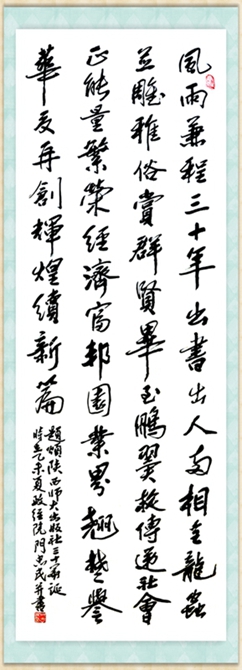 風雨兼程三十年出書出人兩相全龍蟲
並雕雅俗賞群賢畢至鵬翼傳遞社會
正能量繁榮經濟富邦國業界翹楚譽
華夏再創輝煌續新篇
題頌陝西師大出版社三十華誕
時在乙未夏政經院門忠民并書